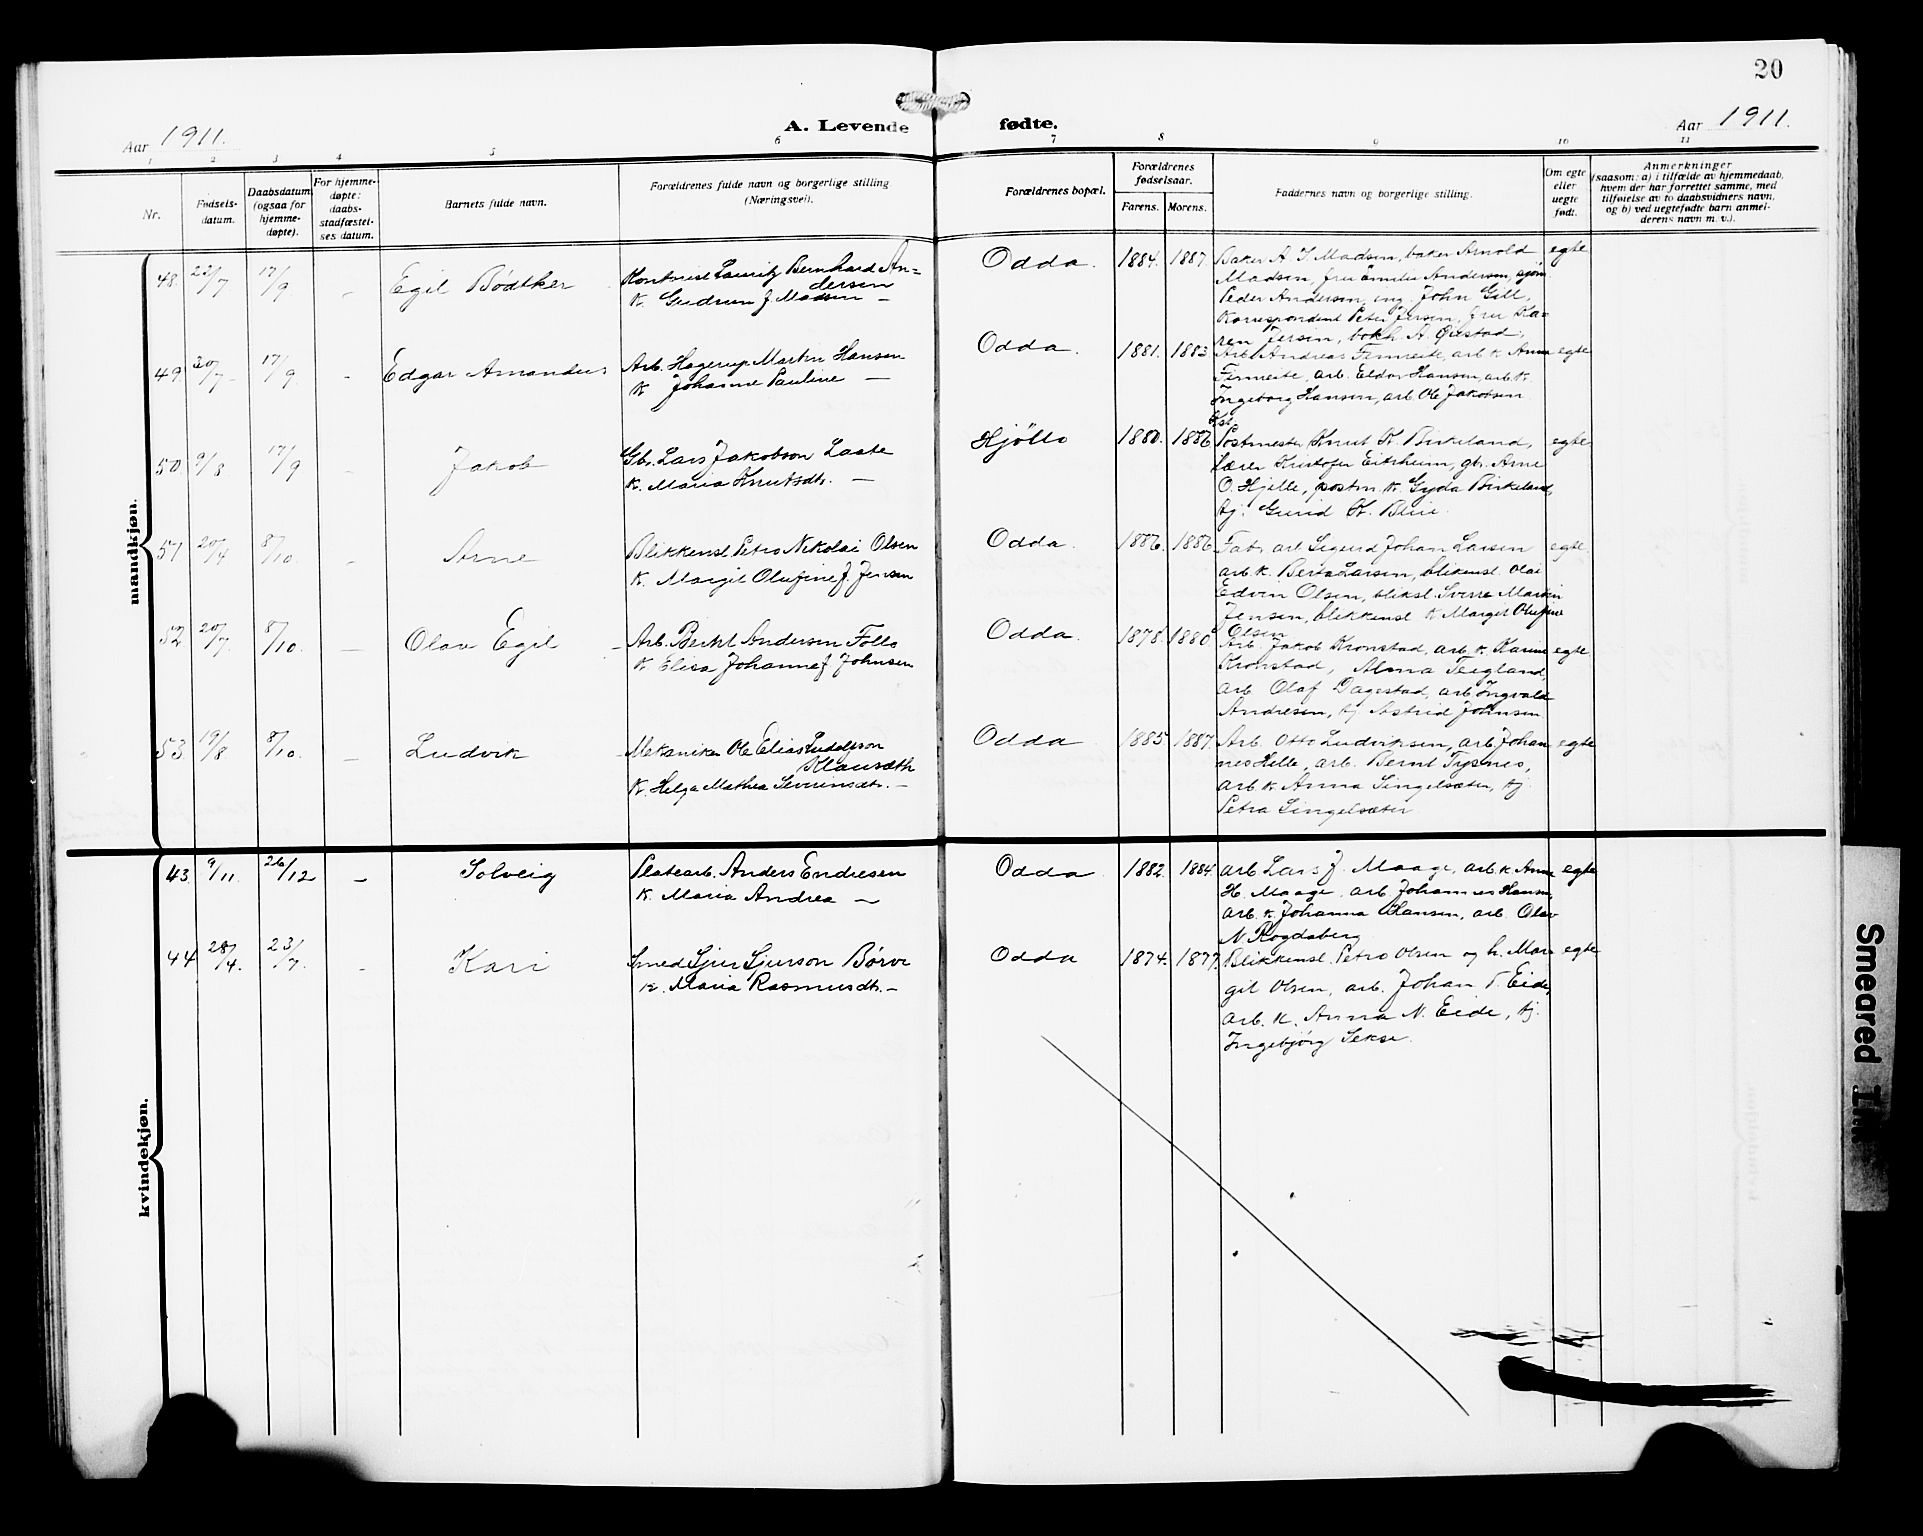 20
Aar 1911.
A. Levende fødte.
Aar 1911.
1 2 3 4 5 6 7 8 9 10 11
Nr.
Fødsels-
datum.
Daabsdatum
(ogsaa for
hjemme-
døpte).
For hjemme-
døpte:
daabs-
stadfæstel-
ses datum.
Barnets fulde navn.
Forældrenes fulde navn og borgerlige stilling
(Næringsvei).
Forældrenes bopæl.
Forældrenes
fødselsaar.
Farens. Morens.
Faddernes navn og borgerlige stilling.
Om egte
eller
uegte
født.
Anmerkninger
(saasom: a) i tilfælde av hjemmedaab,
hvem der har forrettet samme, med
tilføielse av to daabsvidners navn,
og b) ved uegtefødte barn anmel-
derens navn m. v.).
mandkjøn.
48. 22/7 17/9 - Egil Bödtker
Kontorist Lauritz Bernhard An-
dersen
K. Gudrun f. Madsen —
Odda. 1884. 1887.
Baker A. J. Madsen, baker Arnold
Madsen, fru Emilie Andersen, sjöm.
Peder Andersen, ing. John Gill,
Korrespondent Peter Jersen, fru Ka-
ren Jersen, bokh. A. Qustad.
egte
49. 30/7 17/9 - Edgar Amandus
Arb. Hagerup Martin Hansen
K Johanne Pauline —
Odda. 1881. 1883
Arb. Andreas Finnreite, arb. k. Anna
Finnreite, arb. Eldor Hansen, arb. k.
Ingeborg Hansen, arb. Ole Jakobsen
egte
50 9/8 17/9 - Jakob
Gbr. Lars Jakobson Laate
K. Maria Knutsdtr. —
Hjöllo 1880. 1886
Postmester Knut K. Birkeland,
Lærer Kristofer Eitrheim, gbr. Arne
O. Hjelle, postm. k. Gyda Birkeland,
tj. Gurid K. Bleie.
egte
51 20/4 8/10. - Arne
Blikkensl. Petro Nikolai Olsen
K. Margit Olufine f. Jensen
Odda. 1886. 1886
Fabr. arb. Sigurd Johan Larsen
arb. k. Berta Larsen, blikensl. Olai
Edvin Olsen, bliksl. Sverre Martin
Jensen, blikkensl. k Margit Olufine
Olsen
egte
52 20/7. 8/10. — Olav Egil
Arb. Bernt Andersen Follo
K. Elisa Johanne f. Johnsen
Odda. 1878. 1880
Arb. Jakob Kronstad, arb. k. Karine
Kronstad, Alma Teigland,
arb Olaf Dagestad, arb. Ingvald
Andresen, tj Astrid Johnsen
egte
53. 19/8. 8/10. — Ludvik
Mekaniker Ole Elias Ludolfson
K. Helga Mathea Severinsdtr. —
Odda 1885. 1887.
Arb. Otto Ludviksen, arb. Johan
nes Helle, arb. Bernt Tysnes,
arb. k. Anna Singelsæter, tj.
Petra Singelsæter
egte
kvindekjøn.
43. 9/11. 26/12 — Solveig
Platearb. Anders Endresen
K. Maria Andrea —
Odda 1882. 1884.
Arb Lars J. Maage, arb. k. Anna
H. Maage. arb Johannes Hansen,
arb. k. Johanna Hansen, arb. Olav
N Rogdaberg
egte
44 28/4. 23/7. - Kari
Smed Sjur Sjurson Börve
K. Maria Rasmusdtr. —
Odda 1874. 1877.
Blikkensl. Petro Olsen og h. Mar-
git Olsen, arb. Johan T. Eide,
arb. k. Anna N. Eide, tj.
Ingebjörg Sekse.
egte
Smeared